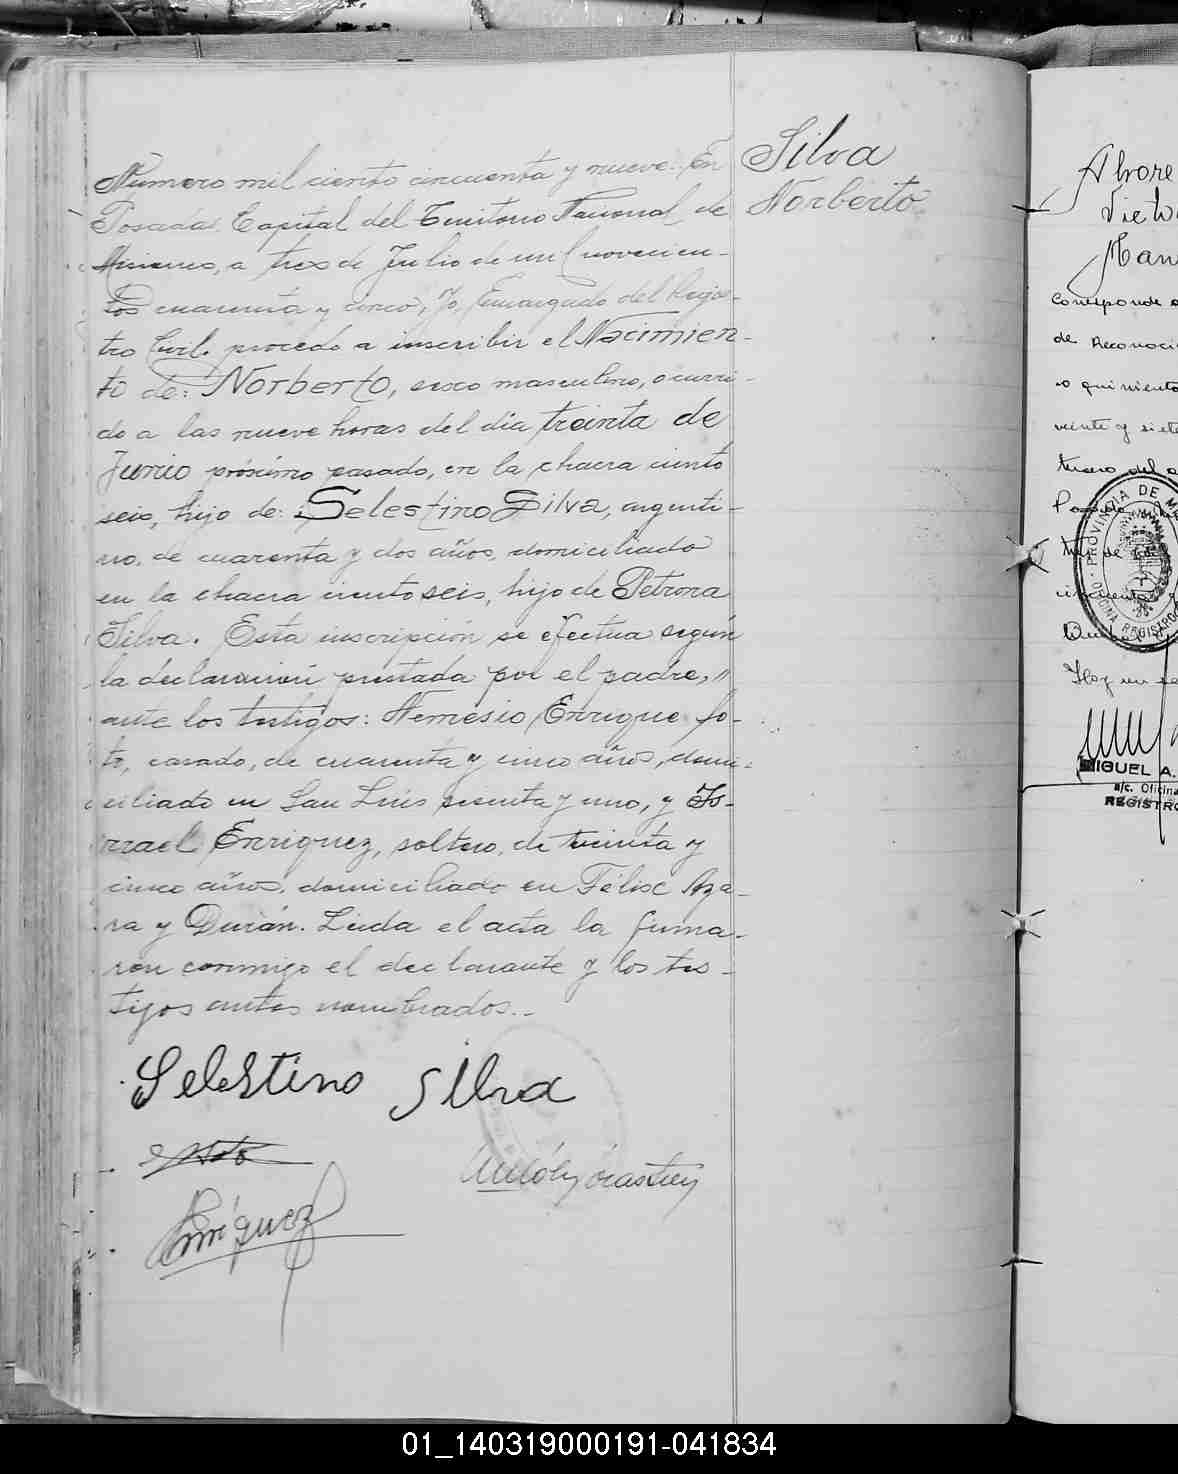 Silva
Norberto
Número mil ciento cincuenta y nueve. En
Posadas Capital del Territorio Nacional de
Misiones, a tres de Julio de mil novecien-
tos cuarenta y cinco, Yo, Encargado del Regis-
tro Civil, procedo a inscribir el Nacimien-
to de: Norberto, sexo masculino, ocurri-
do a las nueve horas del día treinta de
Junio próximo pasado, en la chacra ciento
seis, hijo de: Selestino Silva, argenti-
no, de cuarenta y dos años, domiciliado
en la chacra ciento seis, hijo de Petrona
Silva. Esta inscripción se efectua según
la declaración prestada por el padre,
ante los testigos: Nemesio Enrique So-
to, casado, de cuarenta y cinco años, domi-
ciliado en San Luis sesenta y uno, y Is-
rrael Enriquez, soltero, de treinta y
cinco años, domiciliado en Félix Aza-
ra y Durán. Leida el acta la firma-
ron conmigo el declarante y los tes-
tigos antes nombrados.
Selestino Silva
Enríquez
Alvare
Victo
Man
Corresponde a
de Reconoci
o quiniento
veinte y siete
tercero del a
PROVINCIA DE M
OFICINA REGISTRO
Hoy
MIGUEL A.
a/c. Oficina
REGISTRO
01_140319000191-041834